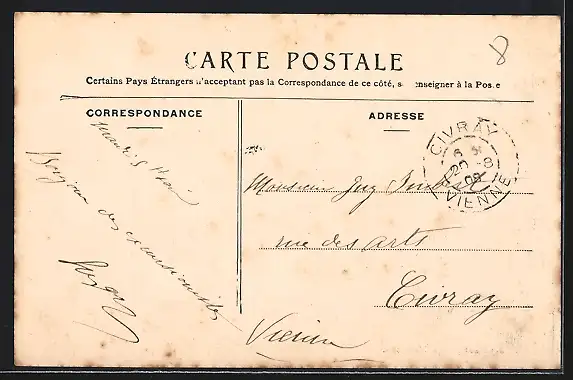 8
CARTE POSTALE
Certains Pays Étrangers n'acceptant pas la Correspondance de ce côté, s enseigner à la Pos e
CORRESPONDANCE
ADRESSE
CIVRAY
20 -8
08
VIENNE
des excursionnistes
Monsieur
rue des arts
Civray
Vienne